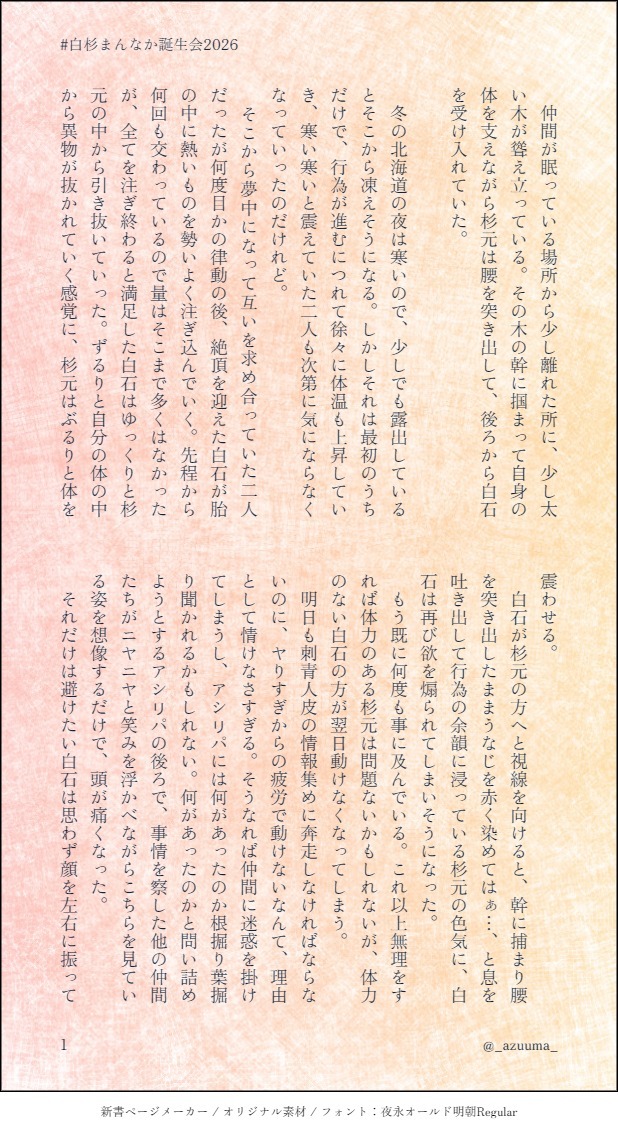 #白杉まんなか誕生会2026
仲間が眠っている場所から少し離れた所に、少し太
い木が聳え立っている。その木の幹に掴まって自身の
体を支えながら杉元は腰を突き出して、後ろから白石
を受け入れていた。
冬の北海道の夜は寒いので、少しでも露出している
とそこから凍えそうになる。しかしそれは最初のうち
だけで、行為が進むにつれて徐々に体温も上昇してい
き、寒い寒いと震えていた二人も次第に気にならなく
なっていったのだけれど。
そこから夢中になって互いを求め合っていた二人
だったが何度目かの律動の後、絶頂を迎えた白石が胎
の中に熱いものを勢いよく注ぎ込んでいく。先程から
何回も交わっているので量はそこまで多くはなかった
が、全てを注ぎ終わると満足した白石はゆっくりと杉
元の中から引き抜いていった。ずるりと自分の体の中
から異物が抜かれていく感覚に、杉元はぶるりと体を
震わせる。
白石が杉元の方へと視線を向けると、幹に捕まり腰
を突き出したままうなじを赤く染めてはぁ…、と息を
吐き出して行為の余韻に浸っている杉元の色気に、白
石は再び欲を煽られてしまいそうになった。
もう既に何度も事に及んでいる。これ以上無理をす
れば体力のある杉元は問題ないかもしれないが、体力
のない白石の方が翌日動けなくなってしまう。
明日も刺青人皮の情報集めに奔走しなければならな
いのに、ヤりすぎからの疲労で動けないなんて、理由
として情けなさすぎる。そうなれば仲間に迷惑を掛け
てしまうし、アシㇼパには何があったのか根掘り葉掘
り聞かれるかもしれない。何があったのかと問い詰め
ようとするアシㇼパの後ろで、事情を察した他の仲間
たちがニヤニヤと笑みを浮かべながらこちらを見てい
る姿を想像するだけで、頭が痛くなった。
それだけは避けたい白石は思わず顔を左右に振って
1
@_azuuma_
新書ページメーカー / オリジナル素材 / フォント：夜永オールド明朝Regular